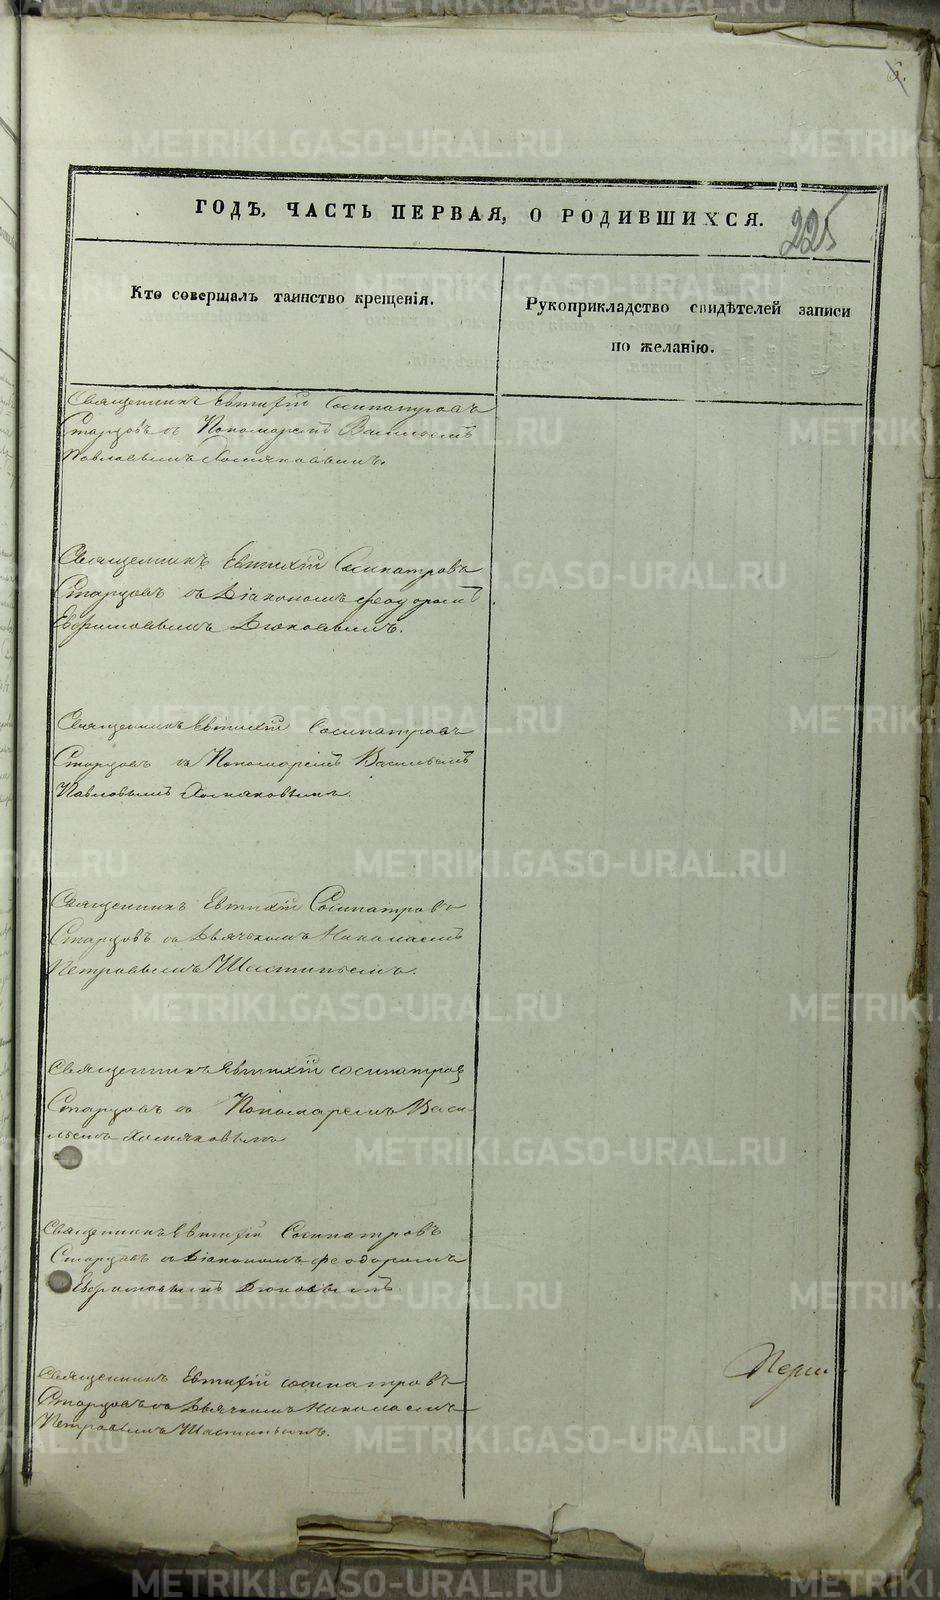 6.
ГОДЪ, ЧАСТЬ ПЕРВАЯ, О РОДИВШИХСЯ.
225
Кто совершалъ таинство крещенія.
Рукоприкладство свидѣтелей записи
по желанію.
Священникъ Евтихій Сосипатровъ
Старцовъ съ Пономаремъ Васильемъ
Павловымъ Хомяковымъ.
Священникъ Евтихій Сосипатровъ
Старцовъ съ Діакономъ Феодоромъ
Ефимовымъ
Священникъ Евтихій Сосипатровъ
Старцовъ съ Пономаремъ Васильемъ
Павловымъ Хомяковымъ.
Священникъ Евтихій Сосипатровъ
Старцовъ съ Дьячкомъ Николаемъ
Петровымъ
Священникъ Евтихій Сосипатровъ
Старцовъ съ Пономаремъ Васи-
льемъ Хомяковымъ
Священникъ Евтихій Сосипатровъ
Старцовъ съ Діакономъ Феодоромъ
Ефимовымъ
Священникъ Евтихій Сосипатровъ
Старцовъ съ Дьячкомъ Николаемъ
Петровымъ
METRIKI.GASO-URAL.RU